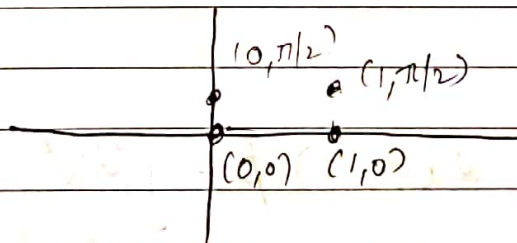 (0,π/2)
(1,π/2)
(0,0) (1,0)